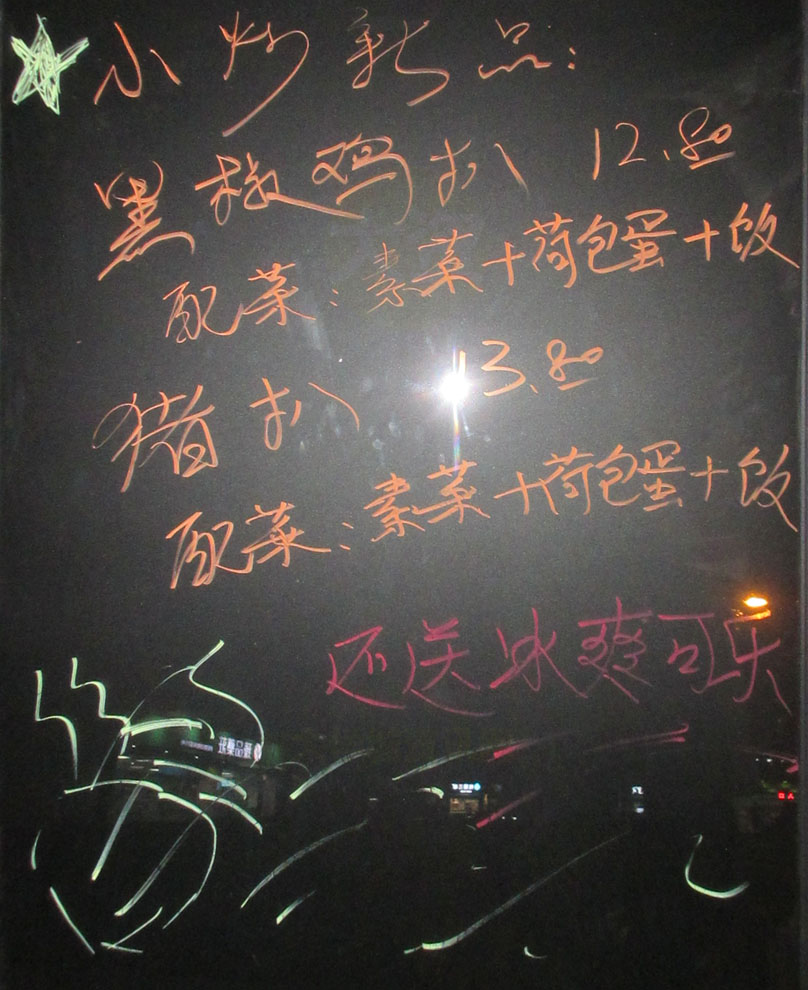 小炒新品：
黑椒鸡扒 12.80
配菜：素菜+荷包蛋+饭
猪扒 13.80
配菜：素菜+荷包蛋+饭
还送冰爽可乐